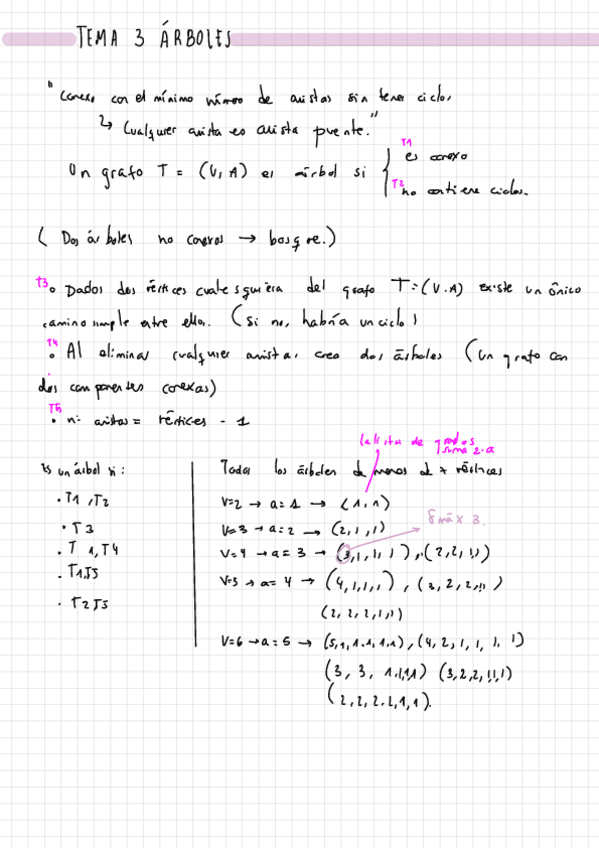 TEMA 3 ÁRBOLES
"Conexo con el mínimo número de aristas sin tener ciclos
↳ Cualquier arista es arista puente."
Un grafo T = (V, A) es árbol si { T1 es conexo
T2 no contiene ciclos.
( Dos árboles no conexos → bosque.)
T3 • Dados dos vértices cualesquiera del grafo T = (V.A) existe un único
camino simple entre ellos. (si no, habría un ciclo)
T4 • Al eliminar cualquier arista, creo dos árboles (un grafo con
dos componentes conexas)
T5 • nº aristas = vértices - 1
la lista de grados suma 2·a
Es un árbol si:
• T1, T2
• T3
• T1, T4
• T1, T5
• T2, T5
Todos los árboles de menos de 7 vértices
V=2 → a=1 → (1,1)
V=3 → a=2 → (2,1,1)
δmáx 3.
V=4 → a=3 → (3,1,1,1), (2,2,1,1)
V=5 → a=4 → (4,1,1,1,), (3,2,2,1,1)
(2,2,2,1,1)
V=6 → a=5 → (5,1,1,1,1,1), (4,2,1,1,1,1)
(3,3,1,1,1,1) (3,2,2,1,1,1)
(2,2,2,2,1,1).